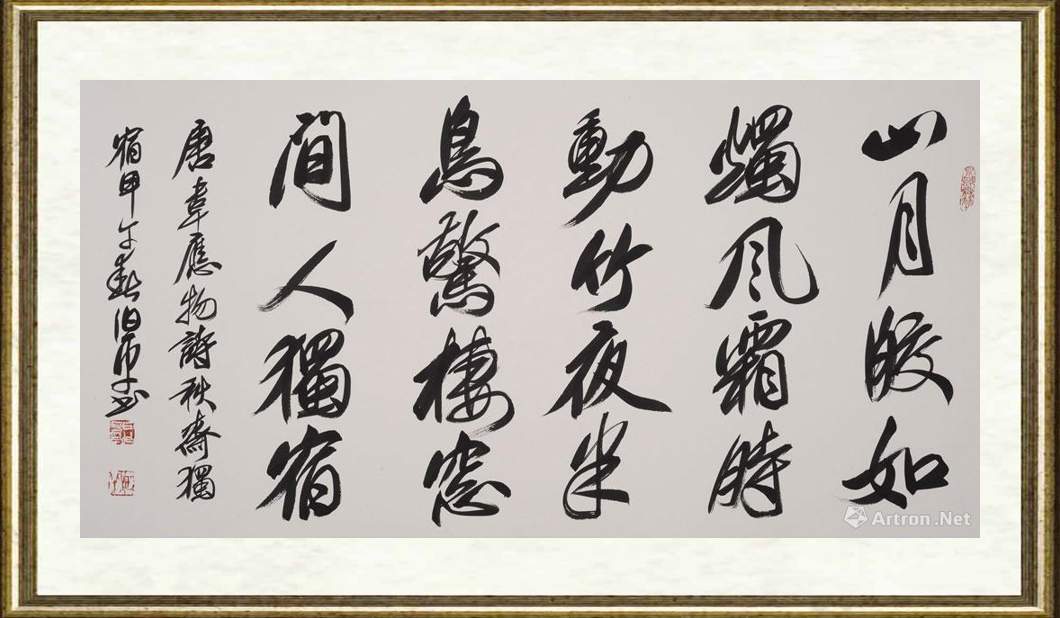 山月皎如
燭風霜時
動竹夜半
鳥驚棲窓
間人獨宿
唐韋應物詩秋齋獨
宿甲午春
Artron.Net